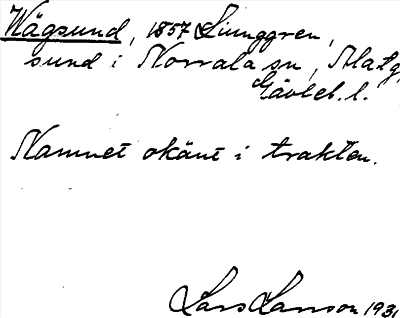 Wägsund, 1857 Ljunggren,
sund i Norrala sn,
Gävleb. l.
Namnet okänt i trakten.
Lars Larsson 1931